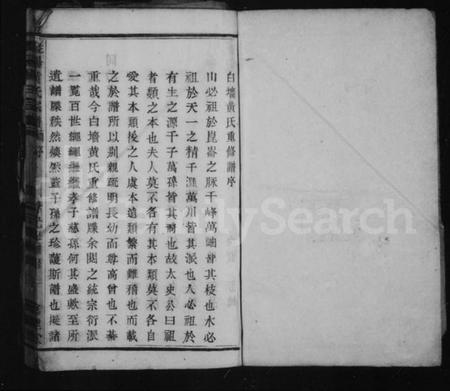 白墻黃氏重修譜序
山必祖於崑崙之脉千峰萬岫皆其枝也水必
祖於天一之精千滙萬川皆其派也人必祖於
有生之源千子萬孫皆其爾也故太史公曰祖
者類之本也夫人莫不各有其本類莫不各自
愛其本類後之人虞本遠類繁而難稽也而載
之於譜所以別親疏明長幼而尊高曾也不綦
重哉今白墻黃氏重修譜牒余閱之統宗衍派
一覽百世繩繩孝子慈孫何其盛歟至所
遺譜牒秩然燦然蓋子孫之珍藏斯譜也挺諸
MySearch